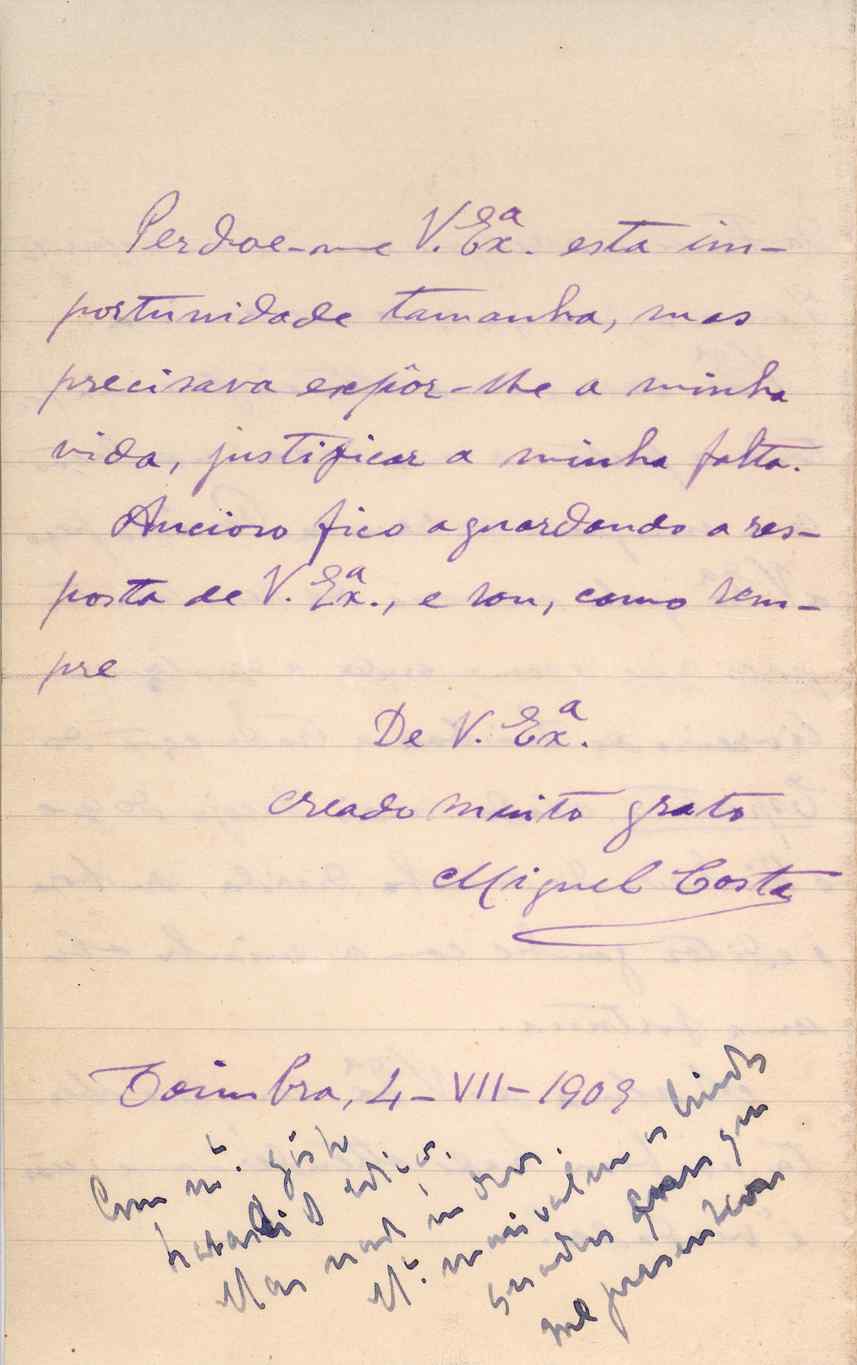 Perdoe-me V. Exª. esta im-
portunidade tamanha, mas
precisava expôr-lhe a minha
vida, justificar a minha falta.
Ancioso fico aguardando a res-
posta de V. Exª., e sou, como sem-
pre
De V. Exª.
creado muito grato
Miguel Costa
Coimbra, 4-VII-1909
Com mto. gosto
Mas nada
Mto. mais valem os lindos
quadros que
me